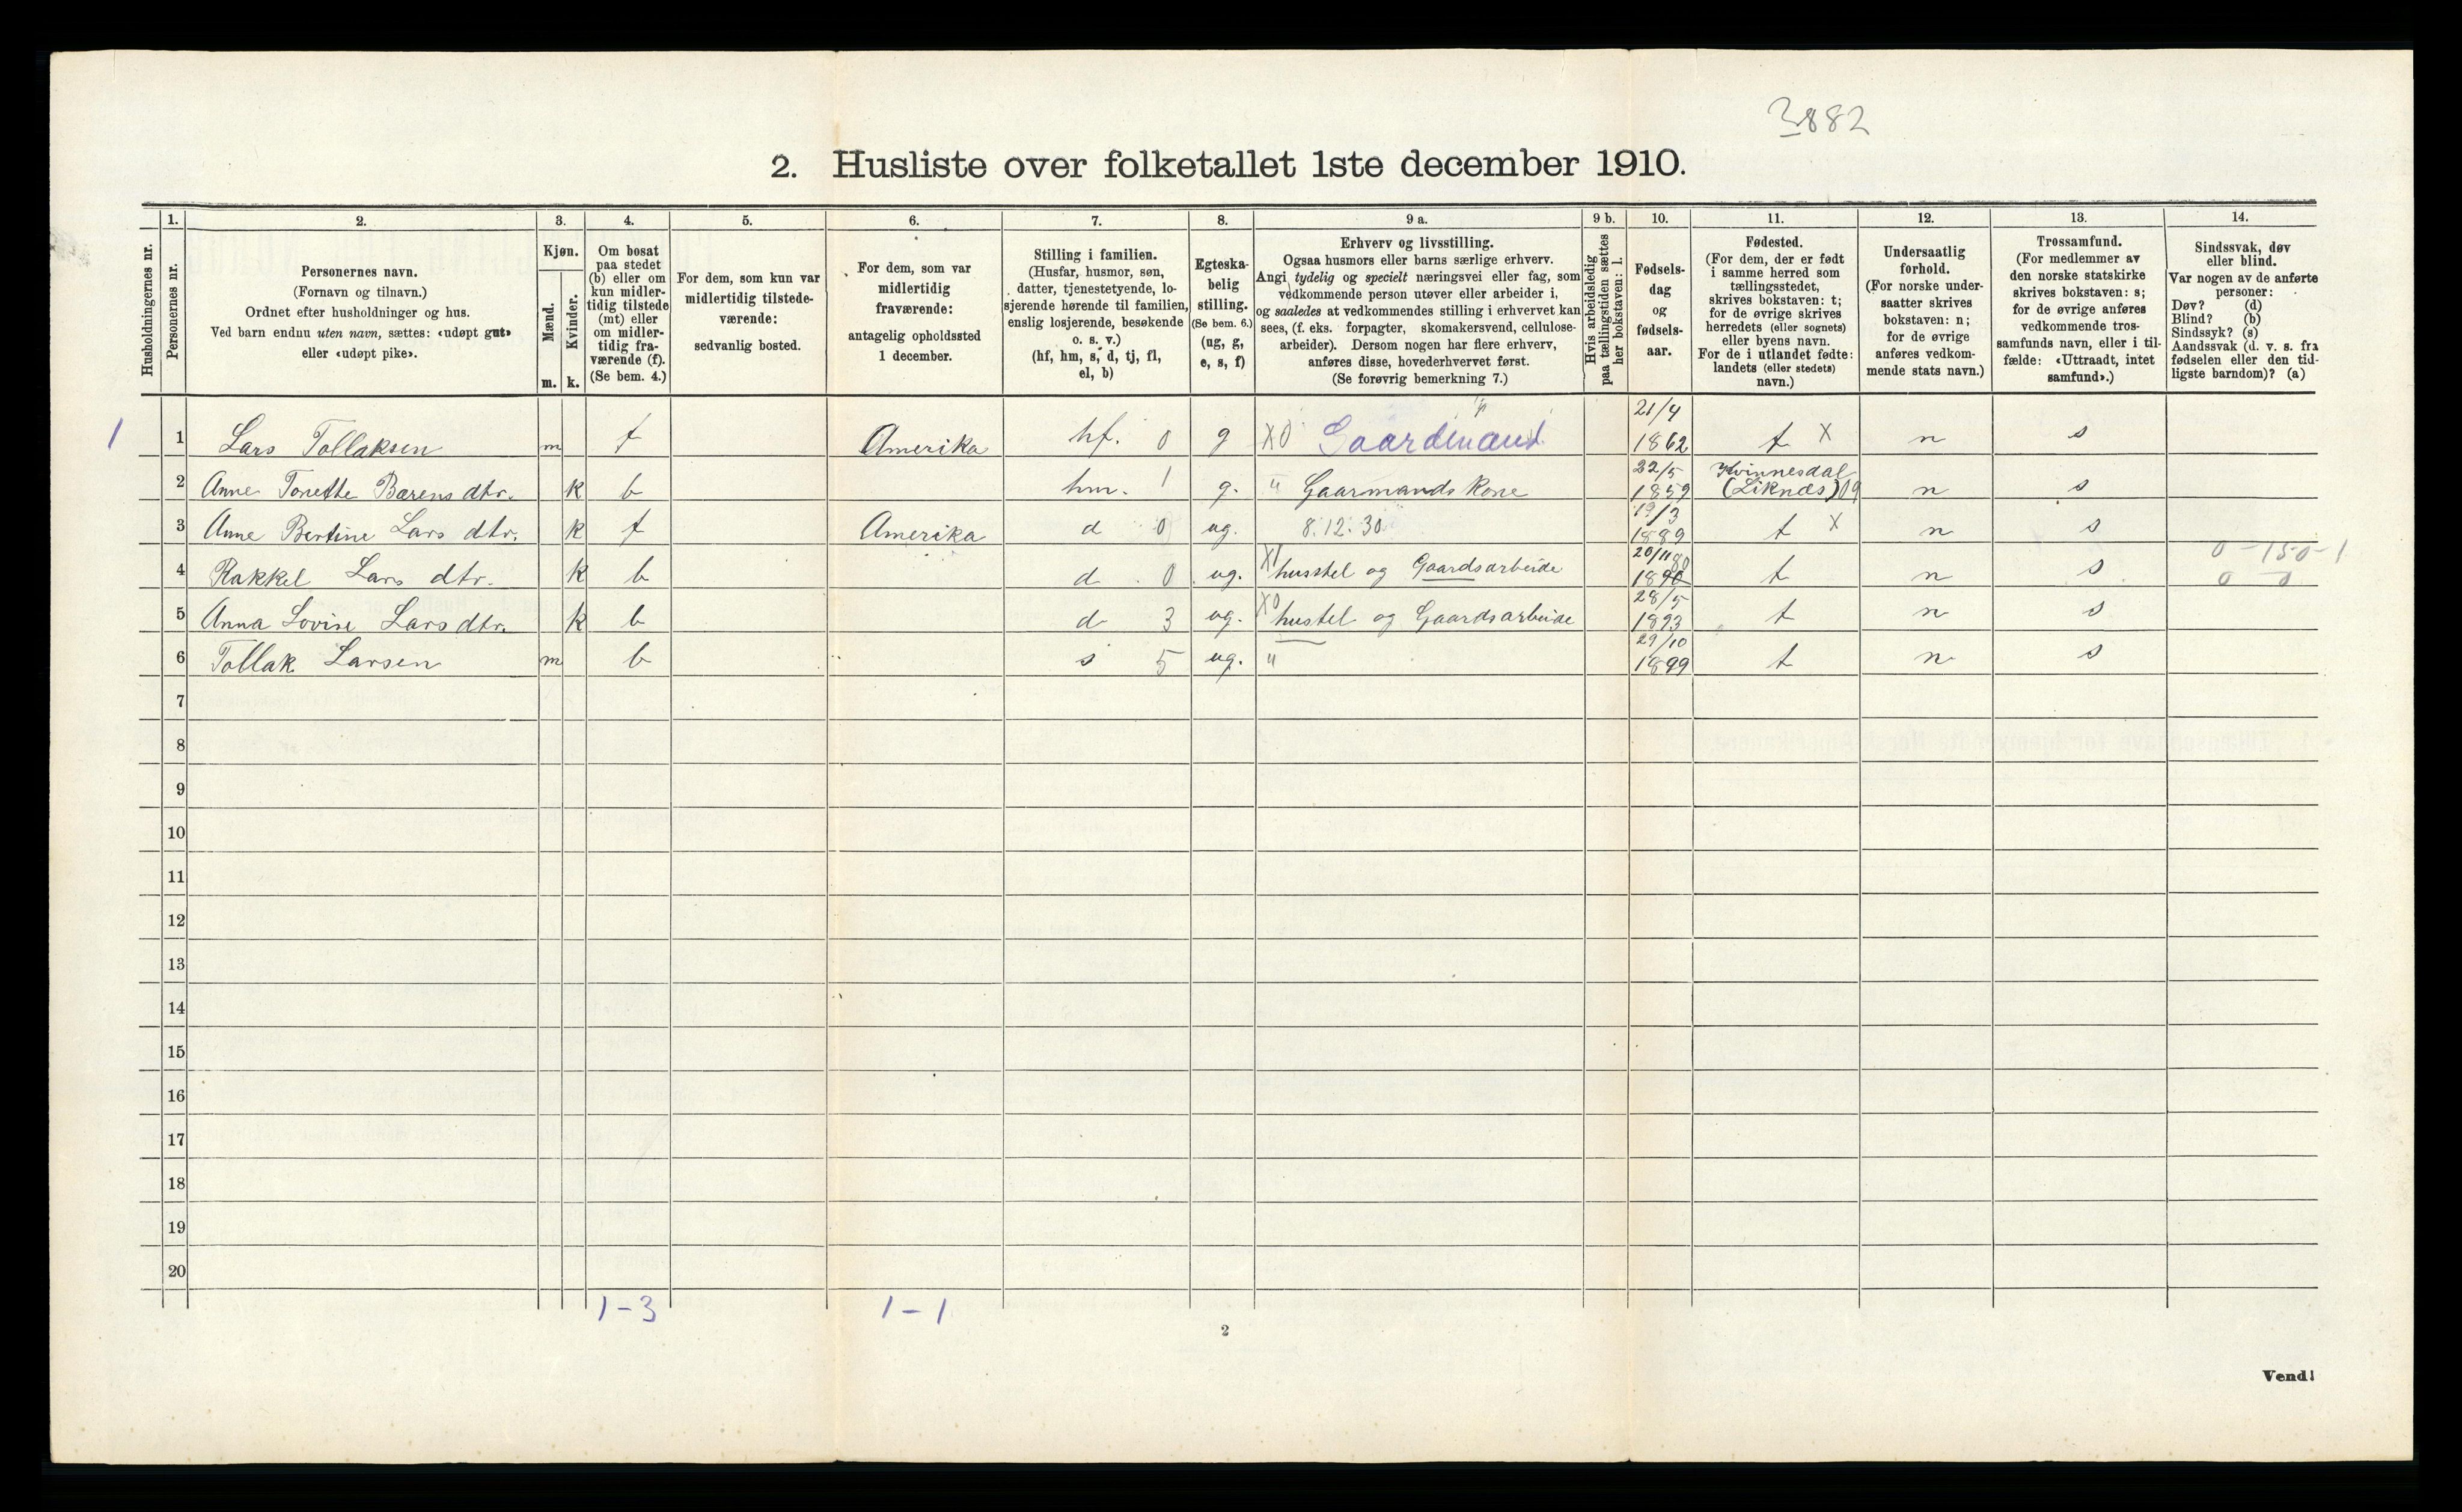 3882
2. Husliste over folketallet 1ste december 1910.
1. 2. 3. 4. 5. 6. 7. 8. 9 a. 9 b. 10. 11. 12. 13. 14.
Husholdningernes nr.
Personernes nr.
Personernes navn.
(Fornavn og tilnavn.)
Ordnet efter husholdninger og hus.
Ved barn endnu uten navn, sættes: «udøpt gut»
eller «udøpt pike».
Kjøn.
Mænd.
Kvinder.
m. k.
Om bosat
paa stedet
(b) eller om
kun midler-
tidig tilstede
(mt) eller
om midler-
tidig fra-
værende (f).
(Se bem. 4.)
For dem, som kun var
midlertidig tilstede-
værende:
sedvanlig bosted.
For dem, som var
midlertidig
fraværende:
antagelig opholdssted
1 december.
Stilling i familien.
(Husfar, husmor, søn,
datter, tjenestetyende, lo-
sjerende hørende til familien,
enslig losjerende, besøkende
o. s. v.)
(hf, hm, s, d, tj, fl,
el, b)
Egteska-
belig
stilling.
(Se bem. 6.)
(ug, g,
e, s, f)
Erhverv og livsstilling.
Ogsaa husmors eller barns særlige erhverv.
Angi tydelig og specielt næringsvei eller fag, som
vedkommende person utøver eller arbeider i,
og saaledes at vedkommendes stilling i erhvervet kan
sees, (f. eks. forpagter, skomakersvend, cellulose-
arbeider). Dersom nogen har flere erhverv,
anføres disse, hovederhvervet først.
(Se forøvrig bemerkning 7.)
Hvis arbeidsledig
paa tællingstiden sættes
her bokstaven: l.
Fødsels-
dag
og
fødsels-
aar.
Fødested.
(For dem, der er født
i samme herred som
tællingsstedet,
skrives bokstaven: t;
for de øvrige skrives
herredets (eller sognets)
eller byens navn.
For de i utlandet fødte:
landets (eller stedets)
navn.)
Undersaatlig
forhold.
(For norske under-
saatter skrives
bokstaven: n;
for de øvrige
anføres vedkom-
mende stats navn.)
Trossamfund.
(For medlemmer av
den norske statskirke
skrives bokstaven: s;
for de øvrige anføres
vedkommende tros-
samfunds navn, eller i til-
fælde: «Uttraadt, intet
samfund».)
Sindssvak, døv
eller blind.
Var nogen av de anførte
personer:
Døv? (d)
Blind? (b)
Sindssyk? (s)
Aandssvak (d. v. s. fra
fødselen eller den tid-
ligste barndom)? (a)
1 1 Lars Tollaksen m f Amerika hf. 0 g X0 Gaardmand 21/4 1862 t X n s
2 Anne Tonette Bærens dtr. k b hm. 1 g. " Gaarmands Kone 22/5 1859 Kvinnesdal (Liknæs) 09 n s
3 Anne Bertine Lars dtr. k f Amerika d 0 ug. 8.12.30 19/3 1889 t X n s
4 Rakkel Lars dtr. k b d 0 ug. X1 husstel og Gaardsarbeide 20/11 1890 t n s 0-150-1 0 0
5 Anna Lovise Lars dtr. k b d 3 ug. X0 hustel og Gaardsarbeide 28/5 1893 t n s
6 Tollak Larsen m b s 5 ug. " 29/10 1899 t n s
7
8
9
10
11
12
13
14
15
16
17
18
19
20
1-3 1-1
2
Vend!